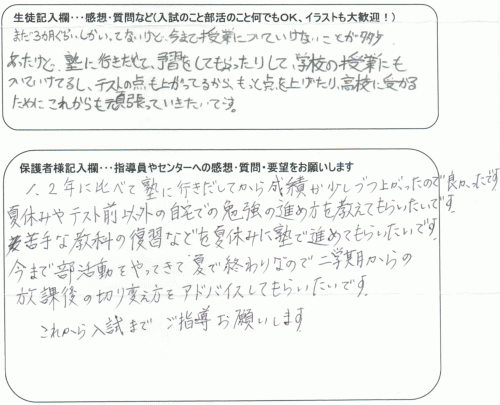 生徒記入欄・・・感想・質問など(入試のこと部活のこと何でもOK、イラストも大歓迎！)
まだ3ヵ月ぐらいしかいってないけど、今まで授業についていけないことが多々
あったけど、塾に行きだして、予習をしてもらったりして、学校の授業にも
ついていけてるし、テストの点も上がってるから、もっと点を上げたり、高校に受かる
ためにこれからも頑張っていきたいです。
保護者様記入欄・・・指導員やセンターへの感想・質問・要望をお願いします
1、2年に比べて塾に行きだしてから成績が少しづつ上がったので良かったです
夏休みやテスト前以外の自宅での勉強の進め方を教えてもらいたいです
苦手な教科の復習などを夏休みに塾で進めてもらいたいです
今まで部活動をやってきて夏で終わりなので二学期からの
放課後の切り変え方をアドバイスしてもらいたいです
これから入試までご指導お願いします